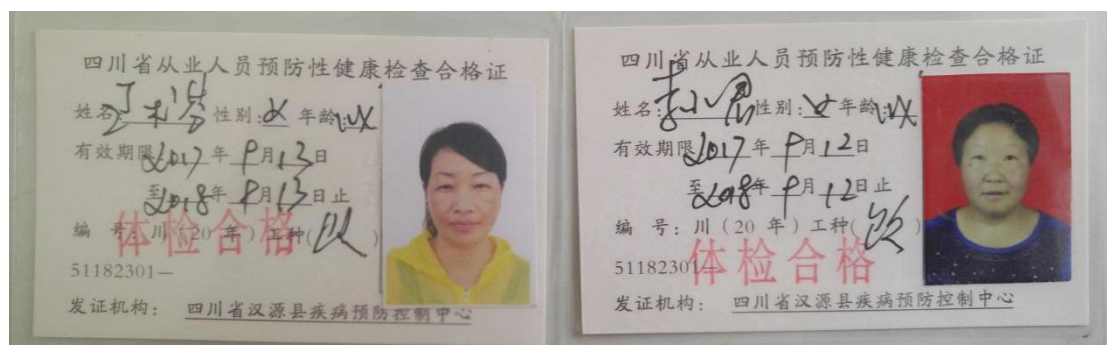 四川省从业人员预防性健康检查合格证
姓名: 性别:女 年龄:
有效期限2017年9月13日
至2018年9月13日止
编 号:川(20 年)工种( )
体检合格
51182301—
发证机构: 四川省汉源县疾病预防控制中心
四川省从业人员预防性健康检查合格证
姓名: 性别:女 年龄:
有效期限2017年9月12日
至2018年9月12日止
编 号:川(20 年)工种( )
51182301—
体检合格
发证机构: 四川省汉源县疾病预防控制中心